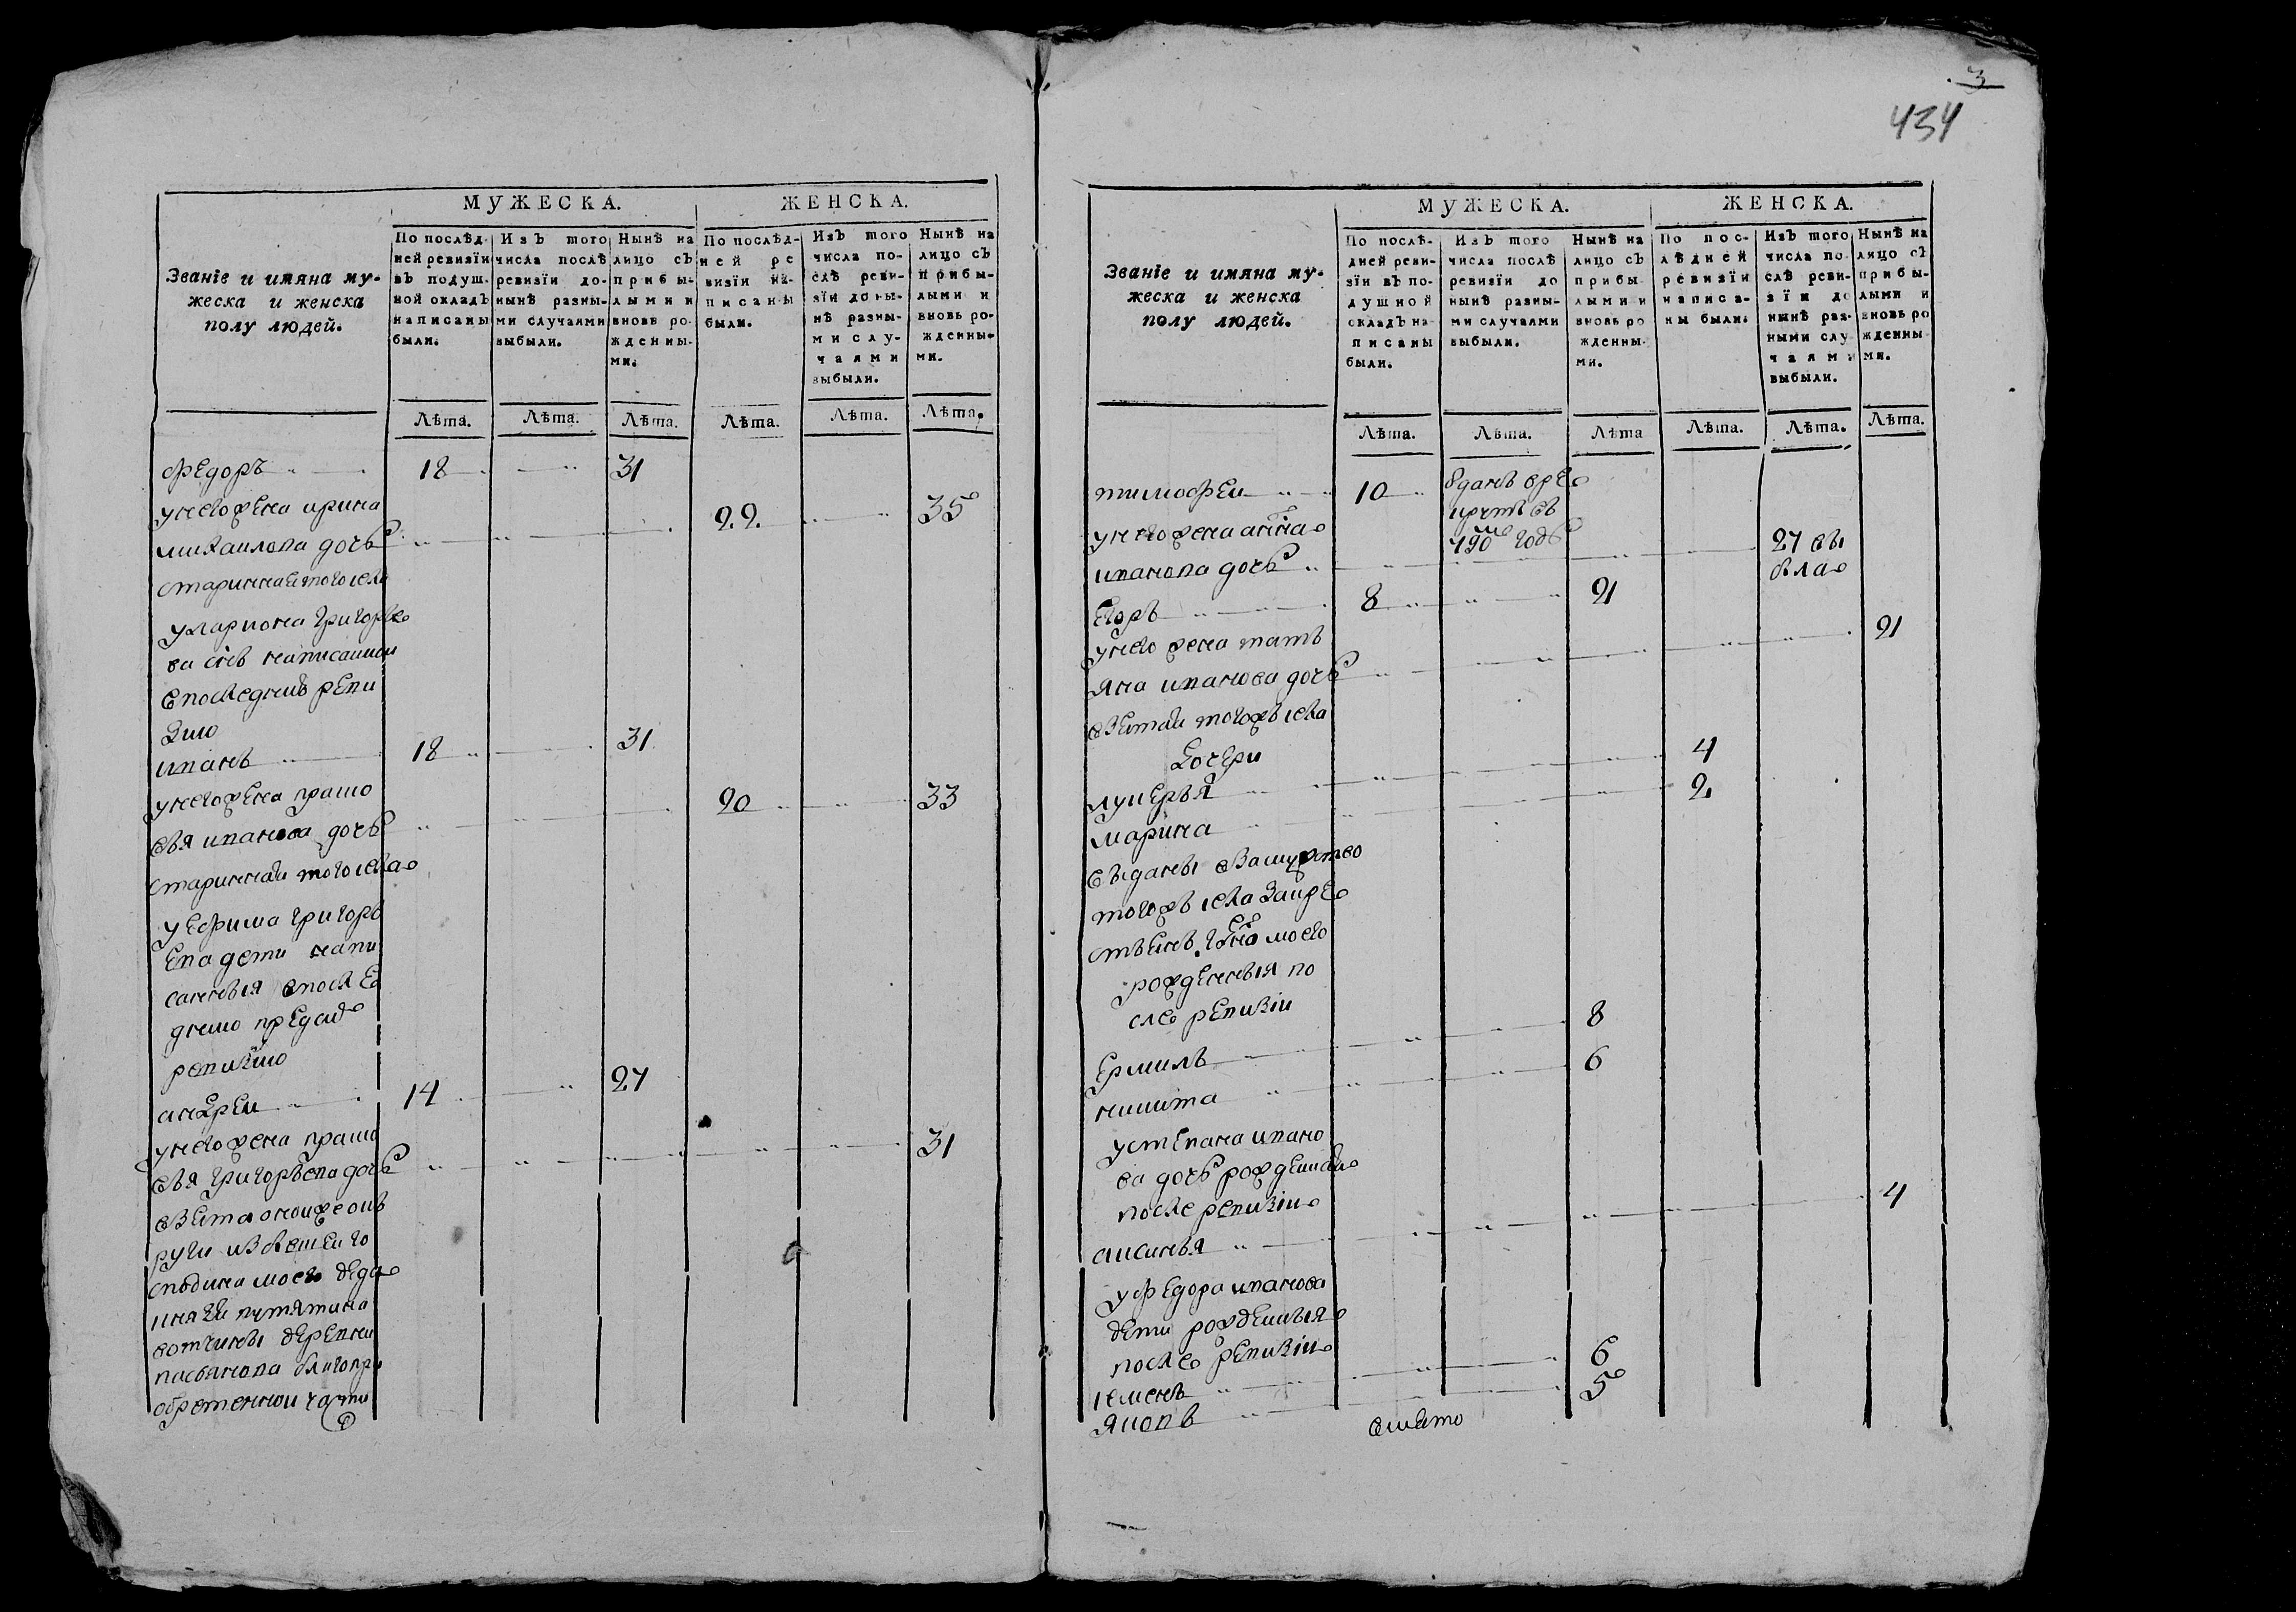 3
434
МУЖЕСКА. ЖЕНСКА.
Званїе и имяна му-
жеска и женска
полу людей.
По послѣд-
ней ревизїи
въ подуш-
ной окладъ
написаны
были.
Изъ того
числа послѣ
ревизїи до-
нынѣ разны-
ми случаями
выбыли.
Нынѣ на
лицо съ
прибы-
лыми и
вновь ро-
жденны-
ми.
По послѣд-
ней ре
визїи на-
писаны
были.
Изъ того
числа по-
слѣ реви-
зїи до ны-
нѣ разны-
ми слу-
чаями
выбыли.
Нынѣ на
лицо съ
прибы-
лыми и
вновь ро-
жденны-
ми.
Лѣта. Лѣта. Лѣта. Лѣта. Лѣта. Лѣта.
Федоръ 18 31
унего жена ирина
михаилова дочь 22 35
стариннаятогосела
улариона григорье
ва снъ написанной
впоследнюю реви
зию
иванъ 18 31
унегожена праско
вья иванова дочь 20 33
стариннаяи тогосела
уефима григорь
ева дети напи
санныя впосле
днюю предсиде
ревизию
андреи 14 27
унегожена праско
вья григорьева дочь 31
взята
господина моего деда
князя путятина
вотчины деревни
части
МУЖЕСКА. ЖЕНСКА.
Званїе и имяна му-
жеска и женска
полу людей.
По послѣ-
дней реви-
зїи въ по-
душной
окладъ на-
писаны
были.
Изъ того
числа послѣ
ревизїи до
нынѣ разны-
ми случаями
выбыли.
Нынѣ на
лицо съ
прибы
лыми и
вновь ро
жденны-
ми.
По пос-
лѣдней
ревизїи
написа-
ны были.
Изъ того
числа по-
слѣ реви-
зїи до
нынѣ раз-
ными слу
чаями
выбыли.
Нынѣ на
лицо съ
прибы-
лыми и
вновь ро
жденны
ми.
Лѣта. Лѣта. Лѣта Лѣта. Лѣта. Лѣта.
тимофеи 10 отданъ вре
круты въ
790м годе
унего жена анна
иванова дочь 27 вы
была
Егоръ 8 21
унего жена татъ
яна иванова дочь 21
взятаи тогожъ села
дочери
лукерья 4
марина 2
выданы взамужство
тогожъ села
моего
рожденныя по
сле ревизіи
Ермилъ 8
никита 6
устепана ивано
ва дочь рожденная
после ревизіи
аксинья 4
уфедора иванова
дети рожденныя
после ревизіи
семенъ 6
яковъ 5